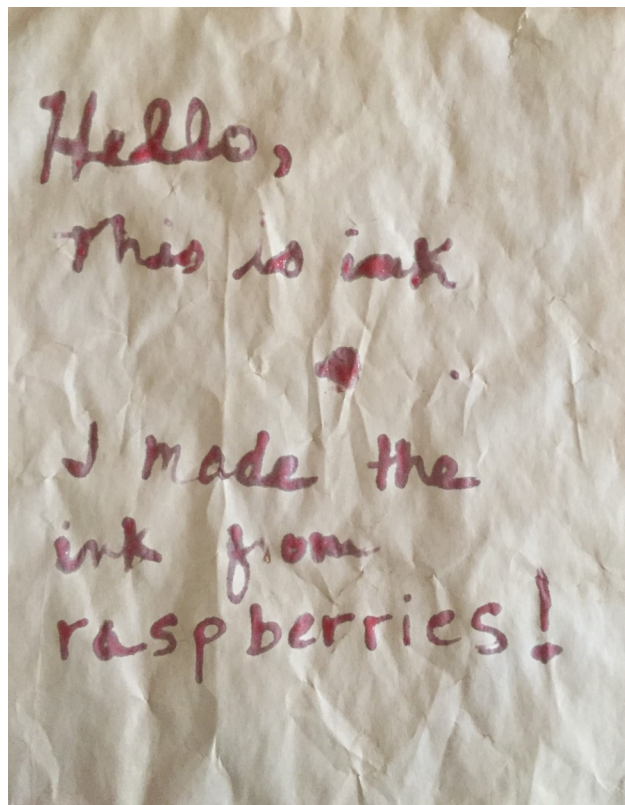 Hello,
This is ink
I made the
ink from
raspberries!